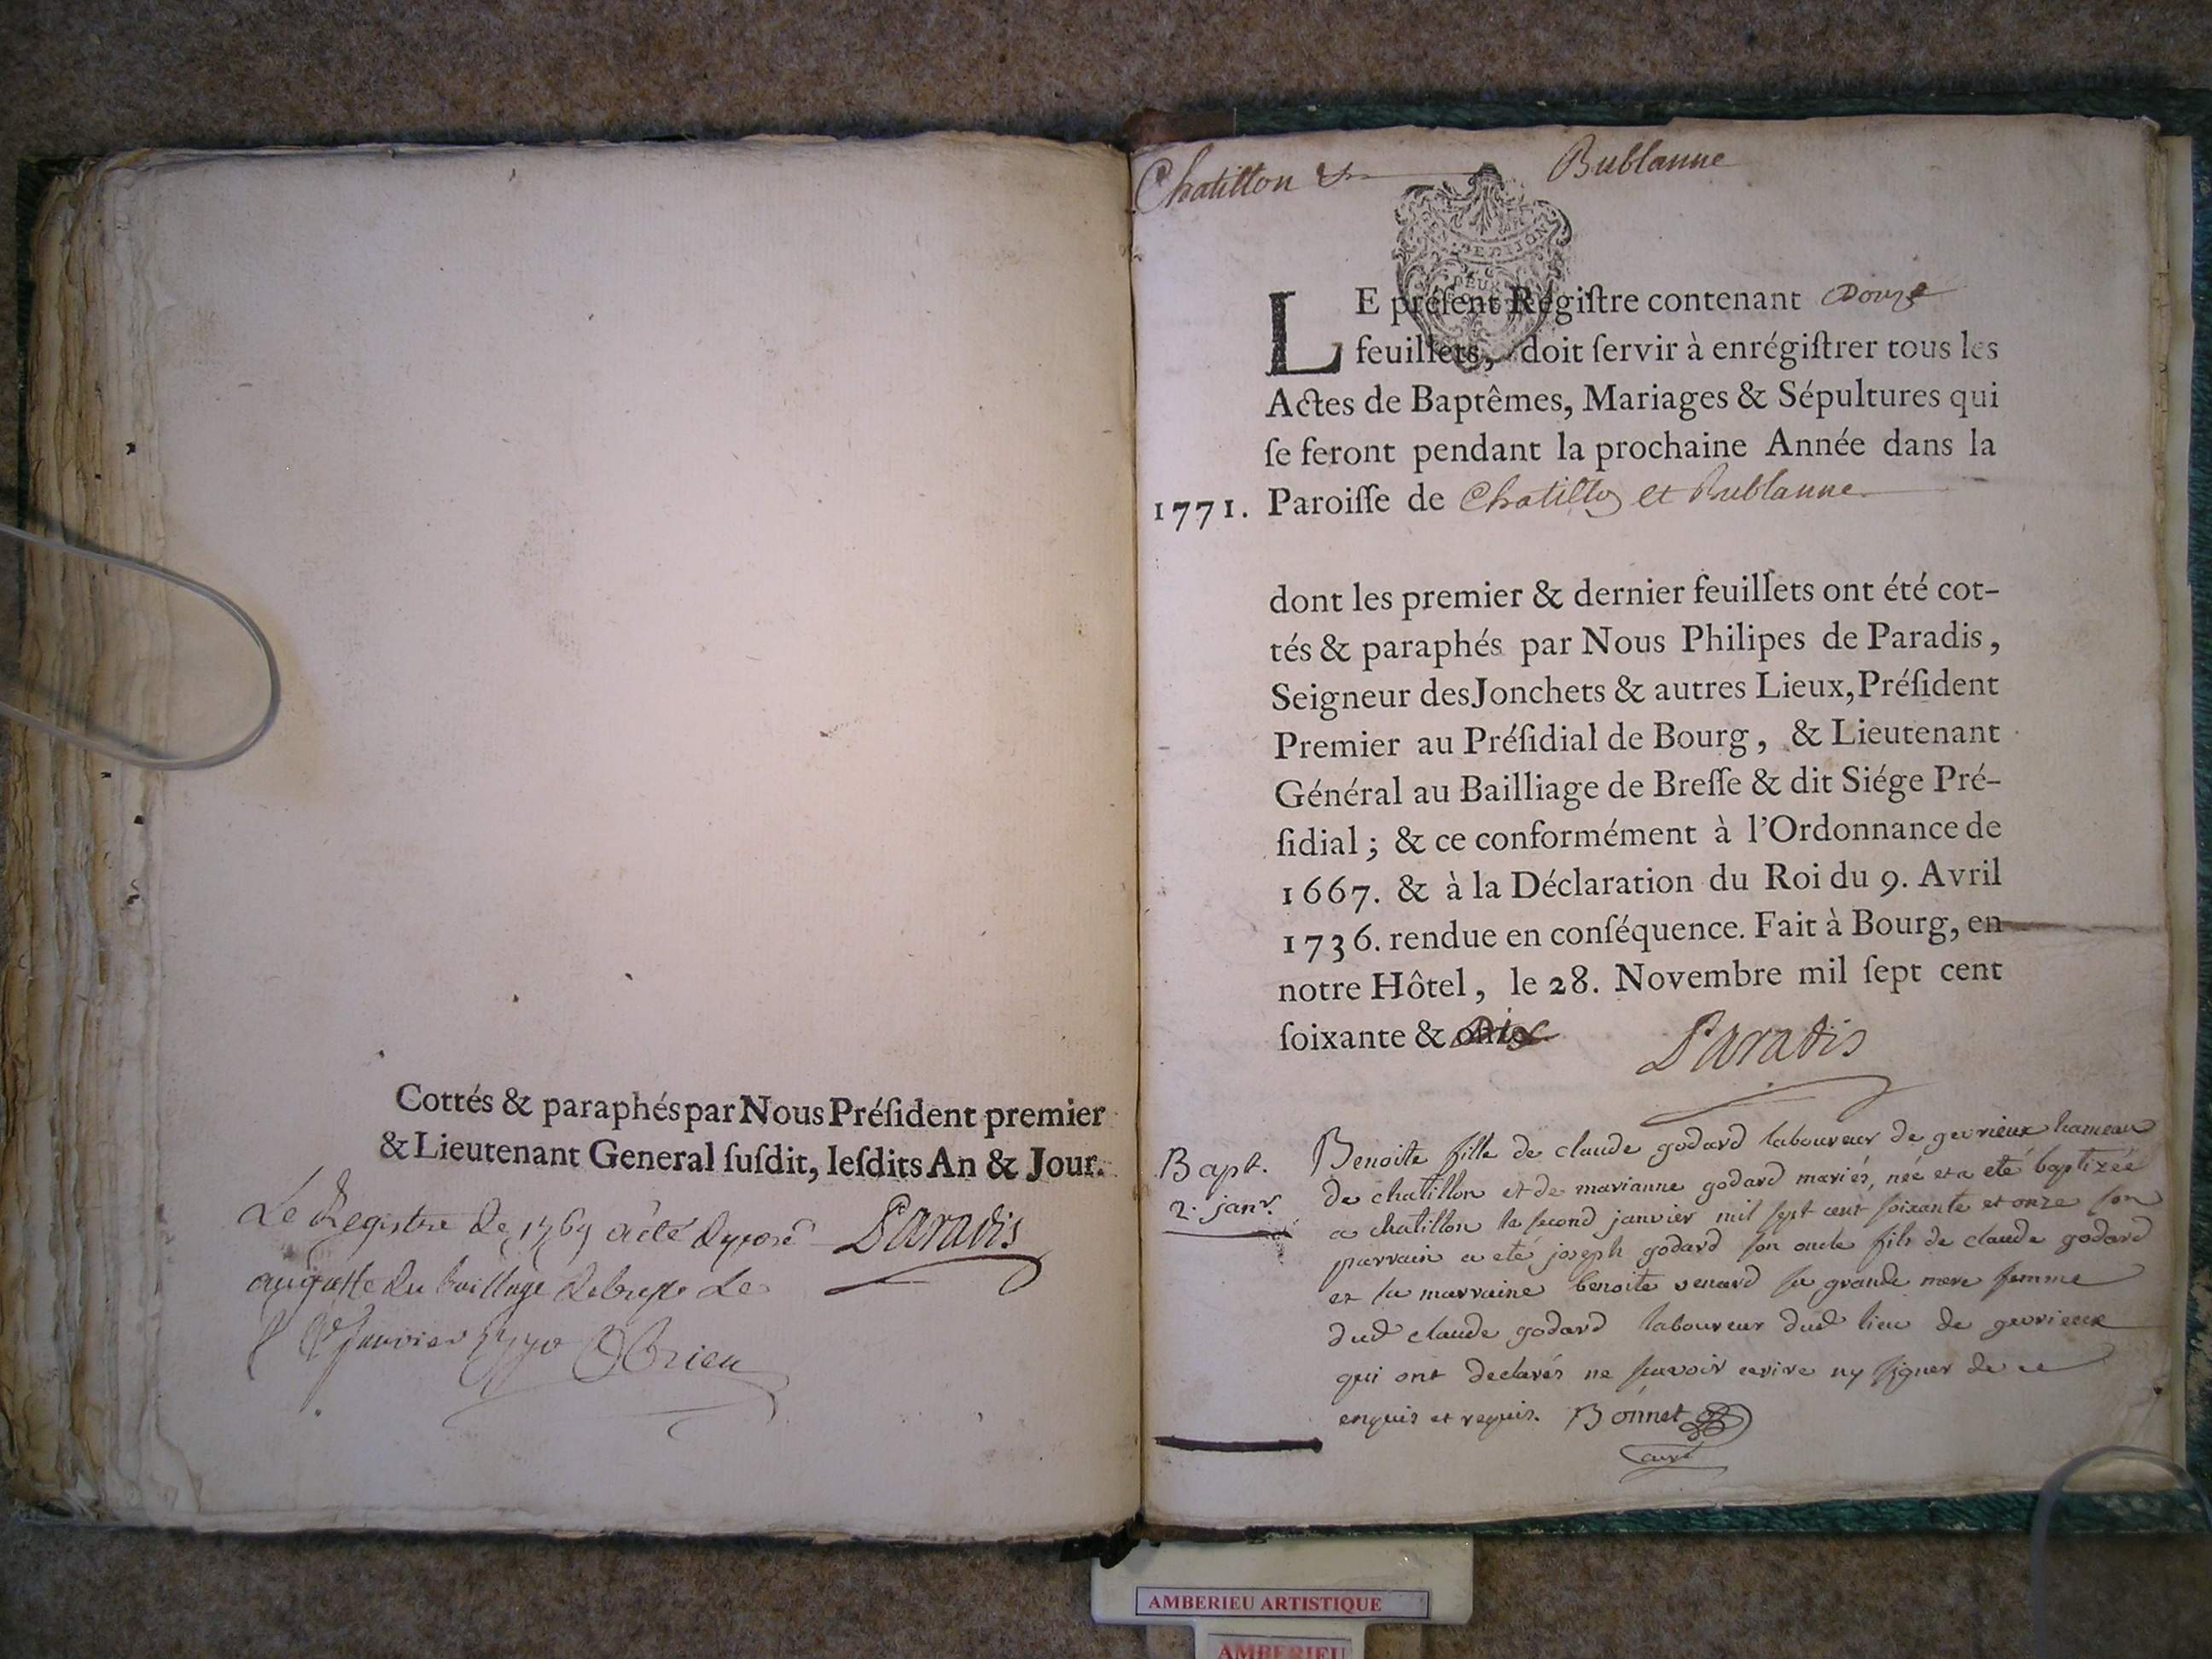 Cottés & paraphés par Nous Préſident premier
& Lieutenant General ſuſdit, leſdits An & Jour.
Le Registre de 1769 a été deposé
Paradis
au greffe du bailliage de bresse Le
janvier 1770 OBrien
Chatillon & Bublanne
LE préſent Régiſtre contenant Douze
feuillets, doit ſervir à enrégiſtrer tous les
Actes de Baptêmes, Mariages & Sépultures qui
ſe feront pendant la prochaine Année dans la
1771. Paroiſſe de Chatillon et Bublanne
dont les premier & dernier feuillets ont été cot-
tés & paraphés par Nous Philipes de Paradis,
Seigneur des Jonchets & autres Lieux, Préſident
Premier au Préſidial de Bourg, & Lieutenant
Général au Bailliage de Breſſe & dit Siége Pré-
ſidial; & ce conformément à l'Ordonnance de
1667. & à la Déclaration du Roi du 9. Avril
1736. rendue en conſéquence. Fait à Bourg, en
notre Hôtel, le 28. Novembre mil ſept cent
ſoixante & Dix
Paradis
Bapt.
2. janr.
Benoite fille de claude godard laboureur de gevrieux hameau
de chatillon et de marianne godard mariés, née et a eté baptizée
a chatillon le second janvier mil sept cent soixante et onze son
parrain a eté joseph godard son oncle fils de claude godard
et la marraine benoite venard sa grande mere femme
dud claude godard laboureur dud lieu de gevrieux
qui ont declarés ne sçavoir ecrire ny signer de ce
enquis et requis. Bonnet
curé
AMBERIEU ARTISTIQUE
AMBERIEU